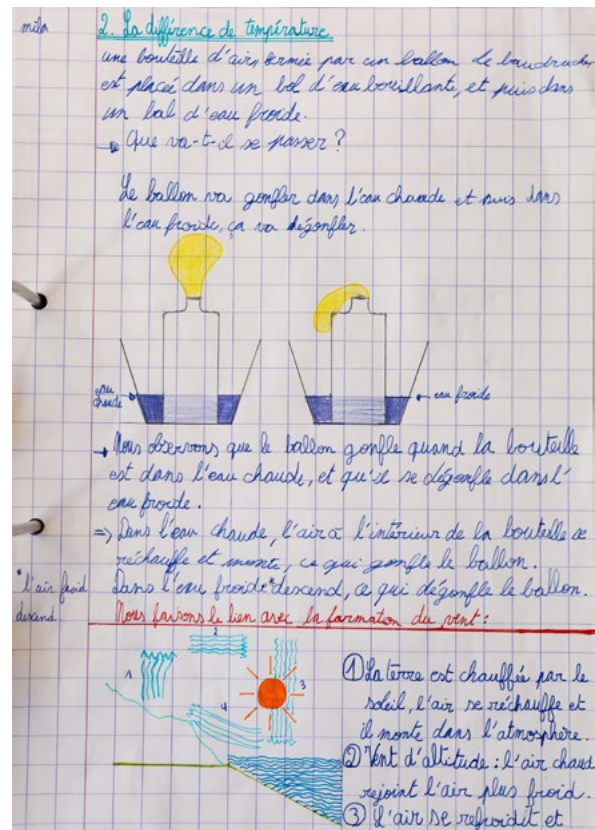 mila
2. La différence de température
une bouteille d'airs fermée par un ballon de baudruche
est placée dans un bol d'eau bouillante, et puis dans
un bol d'eau froide.
→ Que va-t-il se passer ?
Le ballon va gonfler dans l'eau chaude et puis dans
l'eau froide, ça va dégonfler.
eau
chaude
eau froide
→ Nous observons que le ballon gonfle quand la bouteille
est dans l'eau chaude, et qu'il se dégonfle dans l'
eau froide.
=> Dans l'eau chaude, l'air à l'intérieur de la bouteille se
réchauffe et monte, ce qui gonfle le ballon.
Dans l'eau froide* descend, ce qui dégonfle le ballon.
* l'air froid
descend.
Nous faisons le lien avec la formation du vent :
1
2
3
4
① La terre est chauffée par le
soleil, l'air se réchauffe et
il monte dans l'atmosphère.
② Vent d'altitude : l'air chaud
rejoint l'air plus froid.
③ L'air se refroidit et